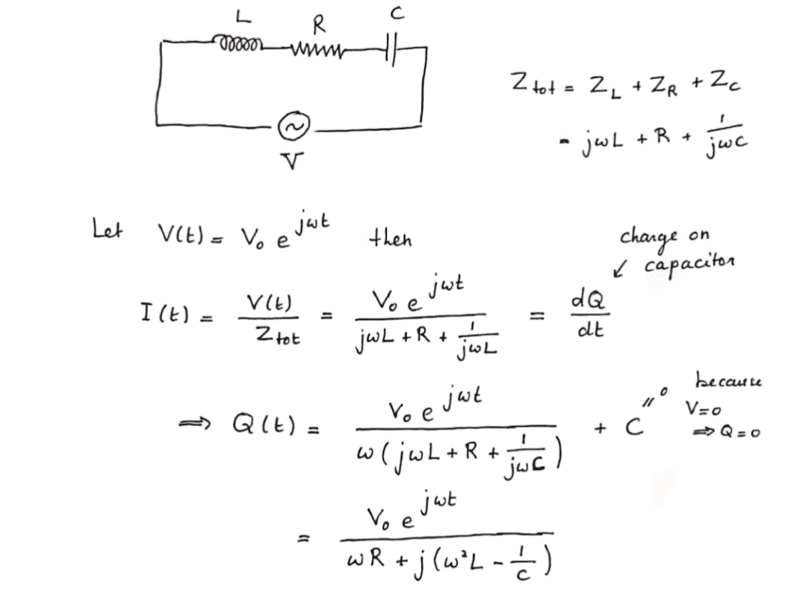 L R C
V
Z_tot = Z_L + Z_R + Z_C
= jωL + R + 1/(jωC)
Let V(t) = V₀ e^{jωt} then
charge on
↙ capacitor
I(t) = V(t)/Z_tot = V₀ e^{jωt}/(jωL + R + 1/(jωL)) = dQ/dt
⇒ Q(t) = V₀ e^{jωt}/(ω(jωL + R + 1/(jωC))) + C = 0
because
V=0
⇒ Q=0
= V₀ e^{jωt}/(ωR + j(ω²L - 1/C))